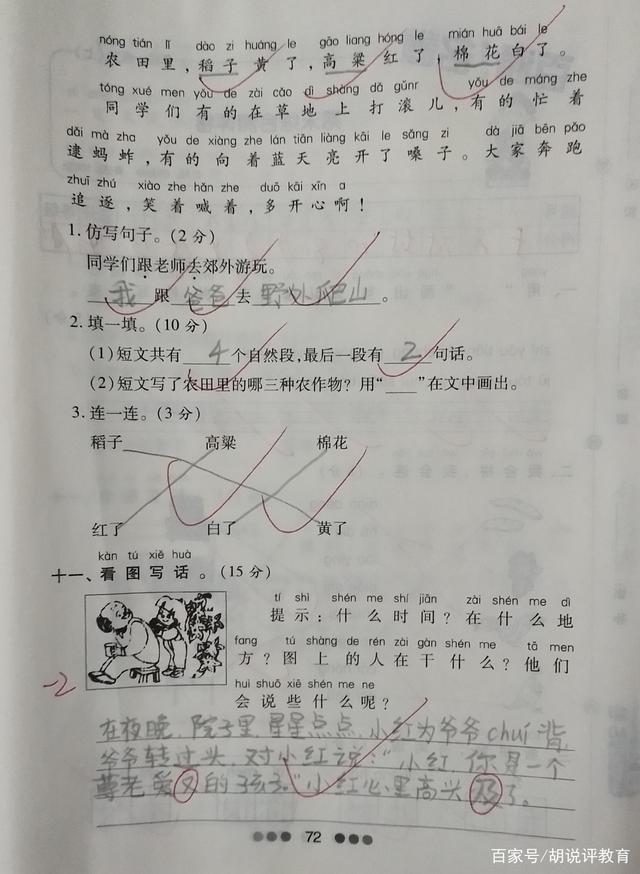 nóng tián lǐ dào zi huáng le gāo liang hóng le mián huā bái le
农田里,稻子黄了,高粱红了,棉花白了。
tóng xué men yǒu de zài cǎo dì shàng dǎ gǔnr yǒu de máng zhe
同学们有的在草地上打滚儿,有的忙着
dǎi mà zha yǒu de xiàng zhe lán tiān liàng kāi le sǎng zi dà jiā bēn pǎo
逮蚂蚱,有的向着蓝天亮开了嗓子。大家奔跑
zhuī zhú xiào zhe hǎn zhe duō kāi xīn a
追逐,笑着喊着,多开心啊!
1. 仿写句子。(2分)
同学们跟老师去郊外游玩。
我跟爸爸去野外爬山。
2. 填一填。(10分)
(1)短文共有4个自然段,最后一段有2句话。
(2)短文写了农田里的哪三种农作物?用“__”在文中画出。
3. 连一连。(3分)
稻子 高粱 棉花
红了 白了 黄了
kàn tú xiě huà
十一、看图写话。(15分)
tí shì shén me shí jiān zài shén me dì
提示:什么时间?在什么地
fang tú shàng de rén zài gàn shén me tā men
方?图上的人在干什么?他们
huì shuō xiē shén me ne
会说些什么呢?
-2
在夜晚,院子里,星星点点,小红为爷爷chuí背,
爷爷转过头,对小红说:“小红,你是一个
尊老爱又的孩子。”小红心里高头及了。
72
百家号/胡说评教育